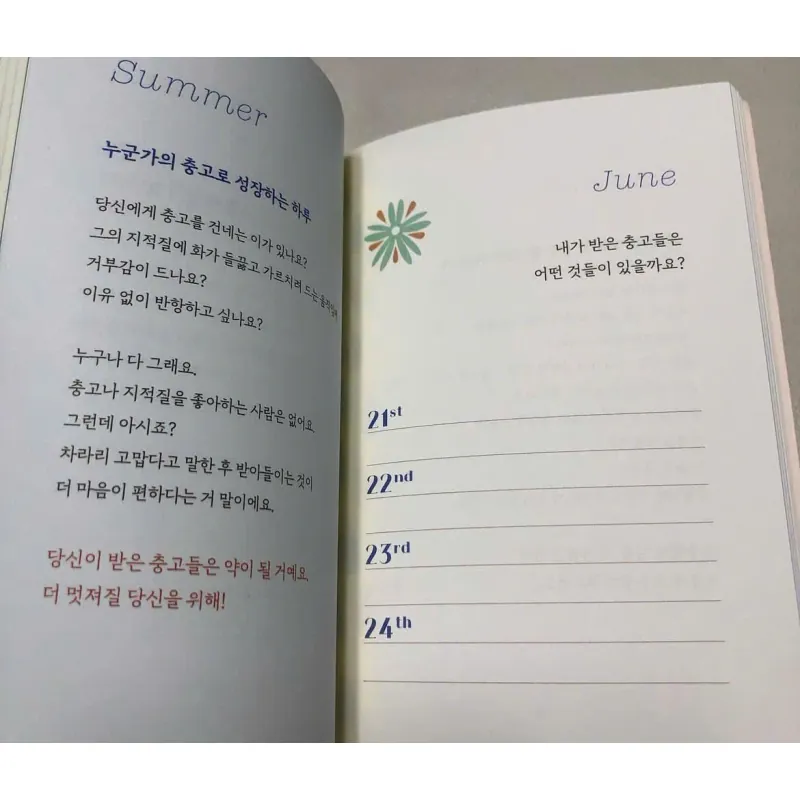 Summer
누군가의 충고로 성장하는 하루
당신에게 충고를 건네는 이가 있나요?
그의 지적질에 화가 들끓고 가르치려 드는
거부감이 드나요?
이유 없이 반항하고 싶나요?
누구나 다 그래요.
충고나 지적질을 좋아하는 사람은 없어요.
그런데 아시죠?
차라리 고맙다고 말한 후 받아들이는 것이
더 마음이 편하다는 거 말이에요.
당신이 받은 충고들은 약이 될 거예요.
더 멋져질 당신을 위해!
June
내가 받은 충고들은
어떤 것들이 있을까요?
21st
22nd
23rd
24th